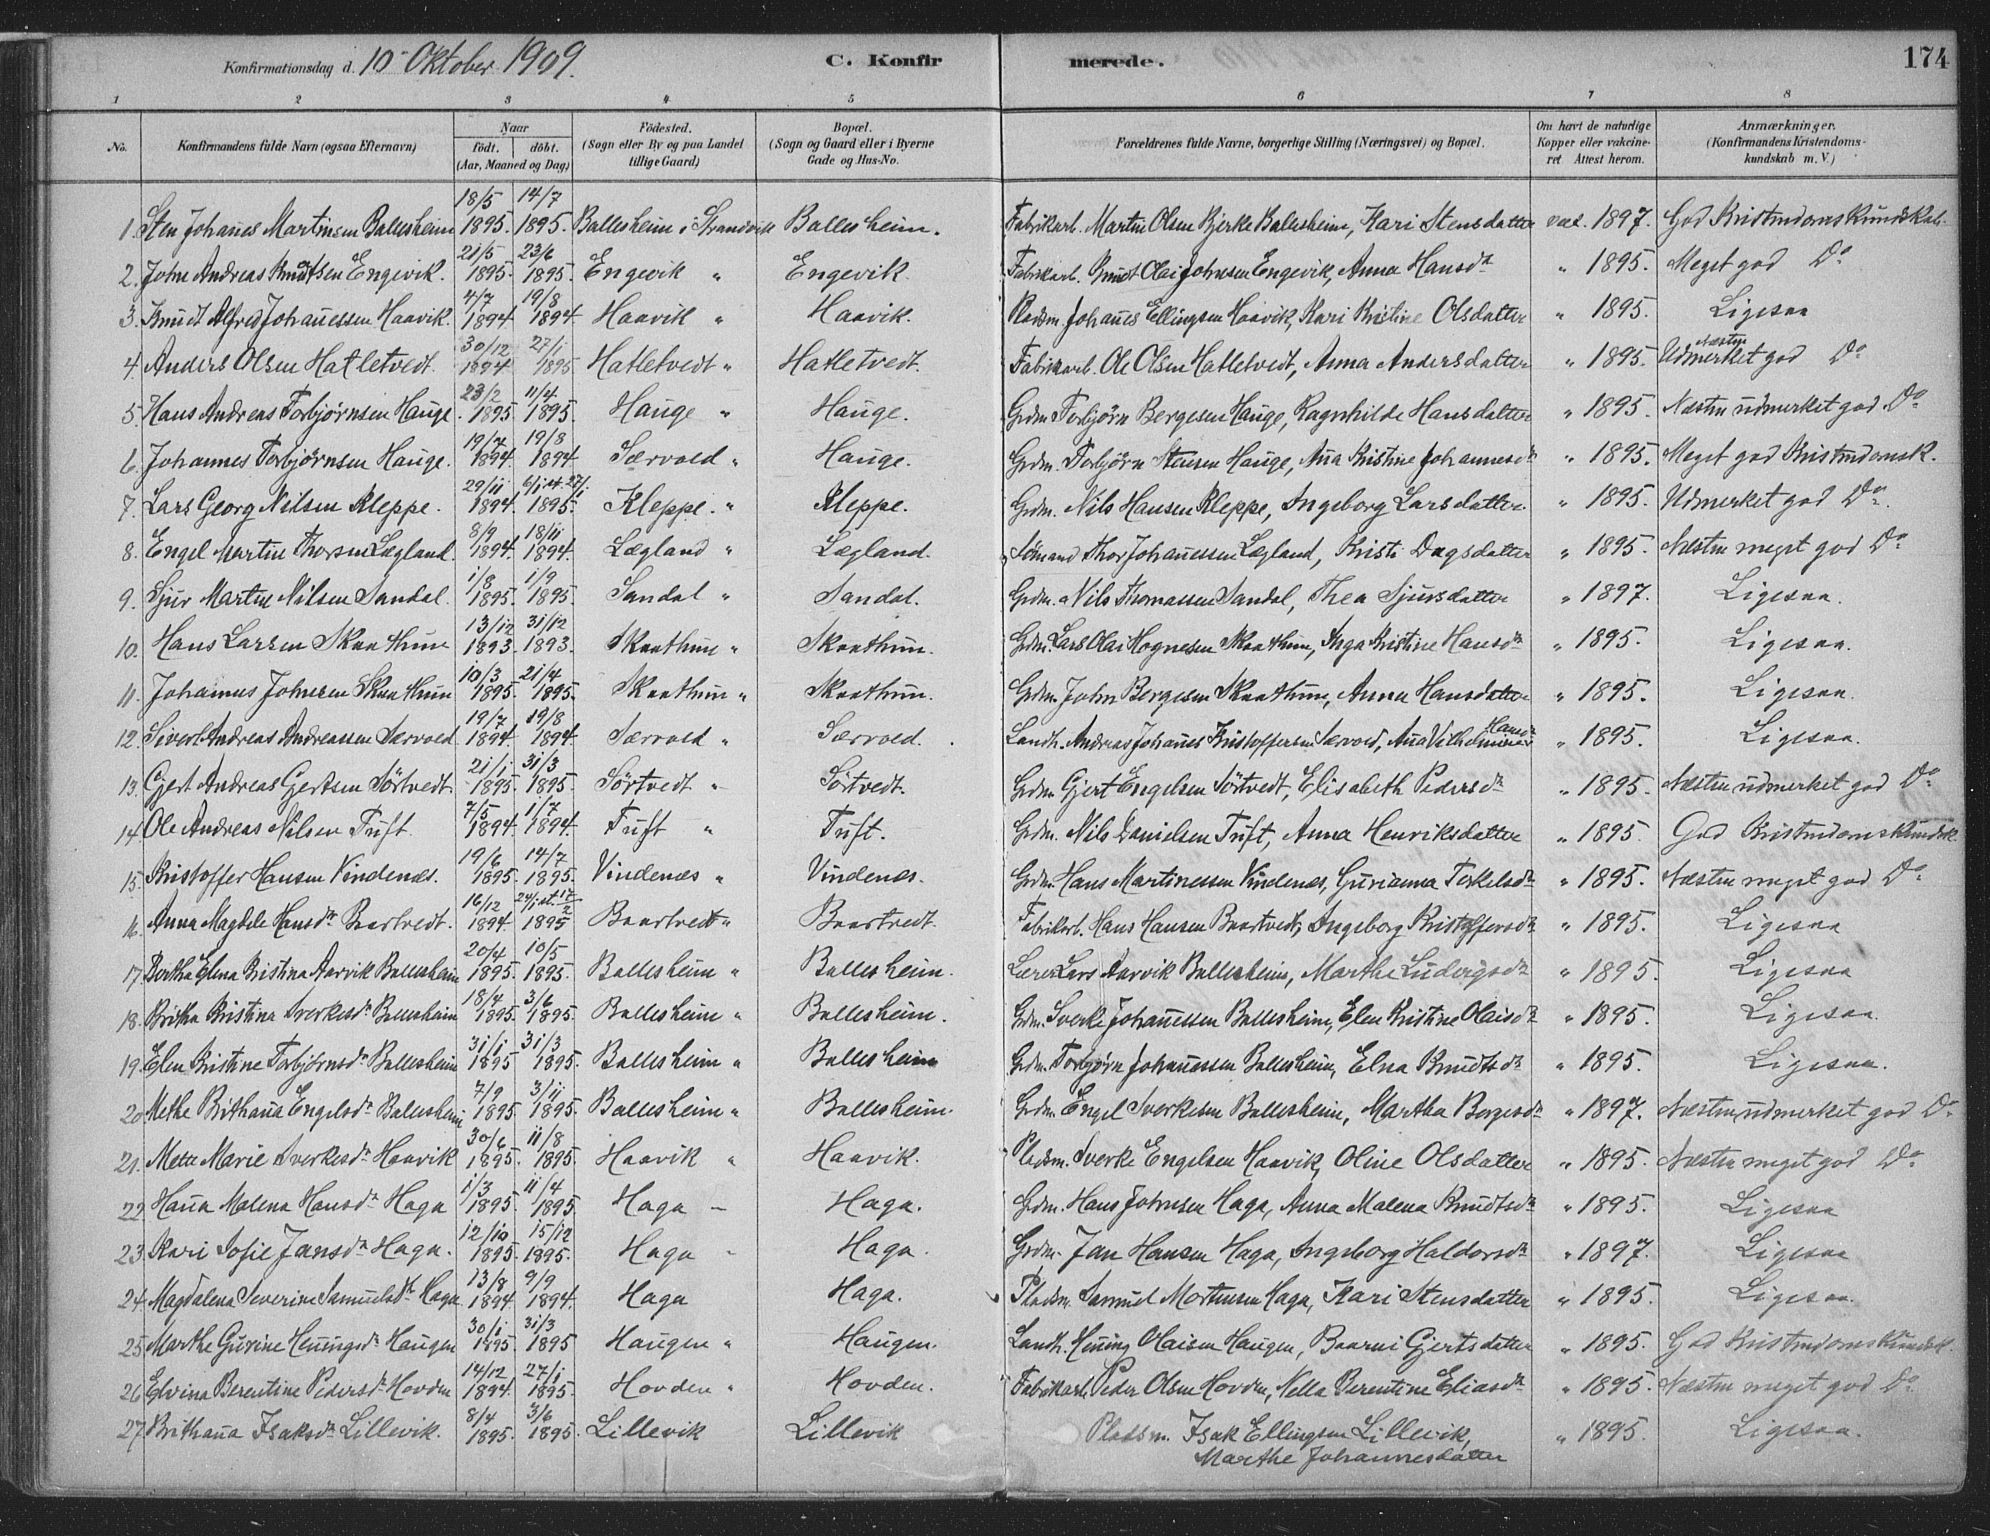 Konfirmationsdag d. 10 Oktober 1909. C. Konfirmerede. 174
1 2 3 4 5 6 7 8
No. Konfirmandens fulde Navn (ogsaa Efternavn) Naar födt. döbt. (Aar, Maaned og Dag) Födested. (Sogn eller By og paa Landet tillige Gaard) Bopæl. (Sogn og Gaard eller i Byerne Gade og Hus-No. Forældrenes fulde Navne, borgerlige Stilling (Næringsvei) og Bopæl. Om havt de naturlige Kopper eller vakcineret Attest herom. Anmærkninger. (Konfirmandens Kristendomskundskab m. V.)
1. Sten Johanes Martinsen Ballesheim 18/5 1895. 14/7 1895. Ballesheim i Strandvik Ballesheim. Fabrikarb. Martin Olsen Bjerke Ballesheim, Kari Stensdatter vac. 1897. God Kristendomskundskab.
2. John Andreas Knudtsen Engevik. 21/5 1895. 23/6 1895. Engevik " Engevik. Fabrikarb. Knudt Olai Johnsen Engevik, Anna Hansdr " 1895. Meget god Do
3. Knudt Alfred Johanessen Haavik. 4/7 1894 19/8 1894 Haavik " Haavik. Pladsm. Johanes Ellingsen Haavik, Kari Kristine Olsdatter " 1895. Ligesaa
4. Anders Olsen Hatletvedt. 30/12 1894 27/1 1895 Hatletvedt " Hatletvedt. Fabrikarb. Ole Olsen Hatletvedt, Anna Andersdatter " 1895. Næsten Udmerket god Do
5. Hans Andreas Torbjørnsen Hauge. 23/2 1895. 11/4 1895. Hauge " Hauge. Grdm. Torbjörn Bergesen Hauge, Ragnhilde Hansdatter " 1895. Næsten udmerket god Do
6. Johannes Torbjørnsen Hauge. 19/7 1894. 19/8 1894 Særvold " Hauge. Grdm. Torbjörn Stensen Hauge, Ana Kristine Johannesdr " 1895. Meget god Kristendomsk.
7. Lars Georg Nilsen Kleppe. 29/11 1894 6/1 st. 27/1 1895. Kleppe. " Kleppe. Grdm. Nils Hansen Kleppe, Ingeborg Larsdatter " 1895. Udmerket god Do.
8. Engel Martin Thorsen Lægland. 8/9 1894. 18/11 1894. Lægland " Lægland. Sömand Thor Johanessen Lægland, Kristi Dagsdatter " 1895. Næsten meget god Do.
9. Sjur Martin Nilsen Sandal. 1/8 1895. 1/9 1895. Sandal " Sandal. Grdm. Nils Thomassen Sandal, Thea Sjursdatter " 1897. Ligesaa.
10. Hans Larsen Skaathun 13/12 1893. 31/12 1893. Skaathun " Skaathun. Grdm. Lars Olai Hognesen Skaathun, Inga Kristine Hansdr " 1895. Ligesaa.
11. Johannes Johnsen Skaathun 10/3 1895. 21/4 1895. Skaathun " Skaathun. Grdm. John Bergesen Skaathun, Anna Hansdatter " 1895. Ligesaa.
12. Sivert Andreas Andreassen Særvold 19/7 1894 19/8 1894. Særvold " Særvold. Landh. Andreas Johanes Kristoffersen Særvold, Ana Vilhelmine Hansdr " 1895. Ligesaa.
13. Gjert Andreas Gjertsen Sörtvedt. 21/1 1895. 31/3 1895. Sörtvedt " Sörtvedt. Grdm. Gjert Engelsen Sörtvedt, Elisabeth Pedersdr " 1895. Næsten udmerket god Do.
14. Ole Andreas Nilsen Tuft. 7/5 1894. 1/7 1894. Tuft " Tuft. Grdm. Nils Danielsen Tuft, Anna Henriksdatter " 1895. God Kristendomskundsk.
15. Kristoffer Hansen Vindenæs. 19/6 1895. 14/7 1895 Vindenæs " Vindenæs. Grdm. Hans Martinessen Vindenæs, Gurianna Torkelsdr " 1895. Næsten meget god Do.
16. Anna Magdele Hansdr Baartvedt. 16/12 1894. 24/1 st. 17/2 1895 Baartvedt " Baartvedt. Fabrikarb. Hans Hansen Baartvedt, Ingeborg Kristoffersdr " 1895. Ligesaa
17. Bertha Elena Kristina Aarvik Ballesheim 20/4 1895. 10/5 1895. Ballesheim " Ballesheim. Lærer Lars Aarvik Ballesheim, Marthe Ludvigsdr " 1895. Ligesaa
18. Britha Kristina Sverkesdr Ballesheim 18/4 1895. 3/6 1895. Ballesheim " Ballesheim. Grdm. Sverke Johanessen Ballesheim, Elen Kristine Olaisdr " 1895. Ligesaa.
19. Elen Kristine Torbjörnsdr Ballesheim 31/1 1895 31/3 1895. Ballesheim " Ballesheim Grdm. Torbjørn Johanessen Ballesheim, Elna Knudtsdr " 1895. Ligesaa.
20. Methe Brithana Engelsdr Ballesheim 7/9 1895. 3/11 1895. Ballesheim " Ballesheim. Grdm. Engel Sverkesen Ballesheim, Martha Bergesdr " 1897. Næsten udmerket god Do.
21. Mette Marie Sverkesdr Haavik 30/6 1895. 11/8 1895. Haavik " Haavik. Pladsm. Sverke Engelsen Haavik, Oline Olsdatter " 1895. Næsten meget god Do
22. Hana Malena Hansdr Haga 1/3 1895. 11/4 1895 Haga " Haga. Grdm. Hans Johnsen Haga, Anna Malena Knudtsdr " 1895. Ligesaa
23. Kari Sofie Jansdr Haga. 12/10 1895 15/12 1895. Haga " Haga. Grdm. Jan Hansen Haga, Ingeborg Haldorsdr " 1897. Ligesaa
24. Magdalena Severine Samuelsdr Haga 13/8 1894 9/9 1894. Haga Haga. Pladsm. Samuel Mortensen Haga, Kari Stensdatter " 1895. Ligesaa.
25. Marthe Gurine Heningsdr Haugen 30/1 1895 31/3 1895 Haugen " Haugen. Landh. Hening Olaisen Haugen, Baarni Gjertsdatter " 1895. God Kristendomskundsk.
26. Elvina Berentine Pedersdr Hovden 14/12 1894. 27/1 1895. Hovden " Hovden. Fabrikarb. Peder Olsen Hovden, Nella Berentine Eliasdr " 1895. Næsten meget god Do.
27. Brithana Isaksdr Lillevik. 8/4 1895. 3/6 1895. Lillevik Lillevik Pladsm. Isak Ellingsen Lillevik, " 1895. Ligesaa.
Marthe Johannesdatter